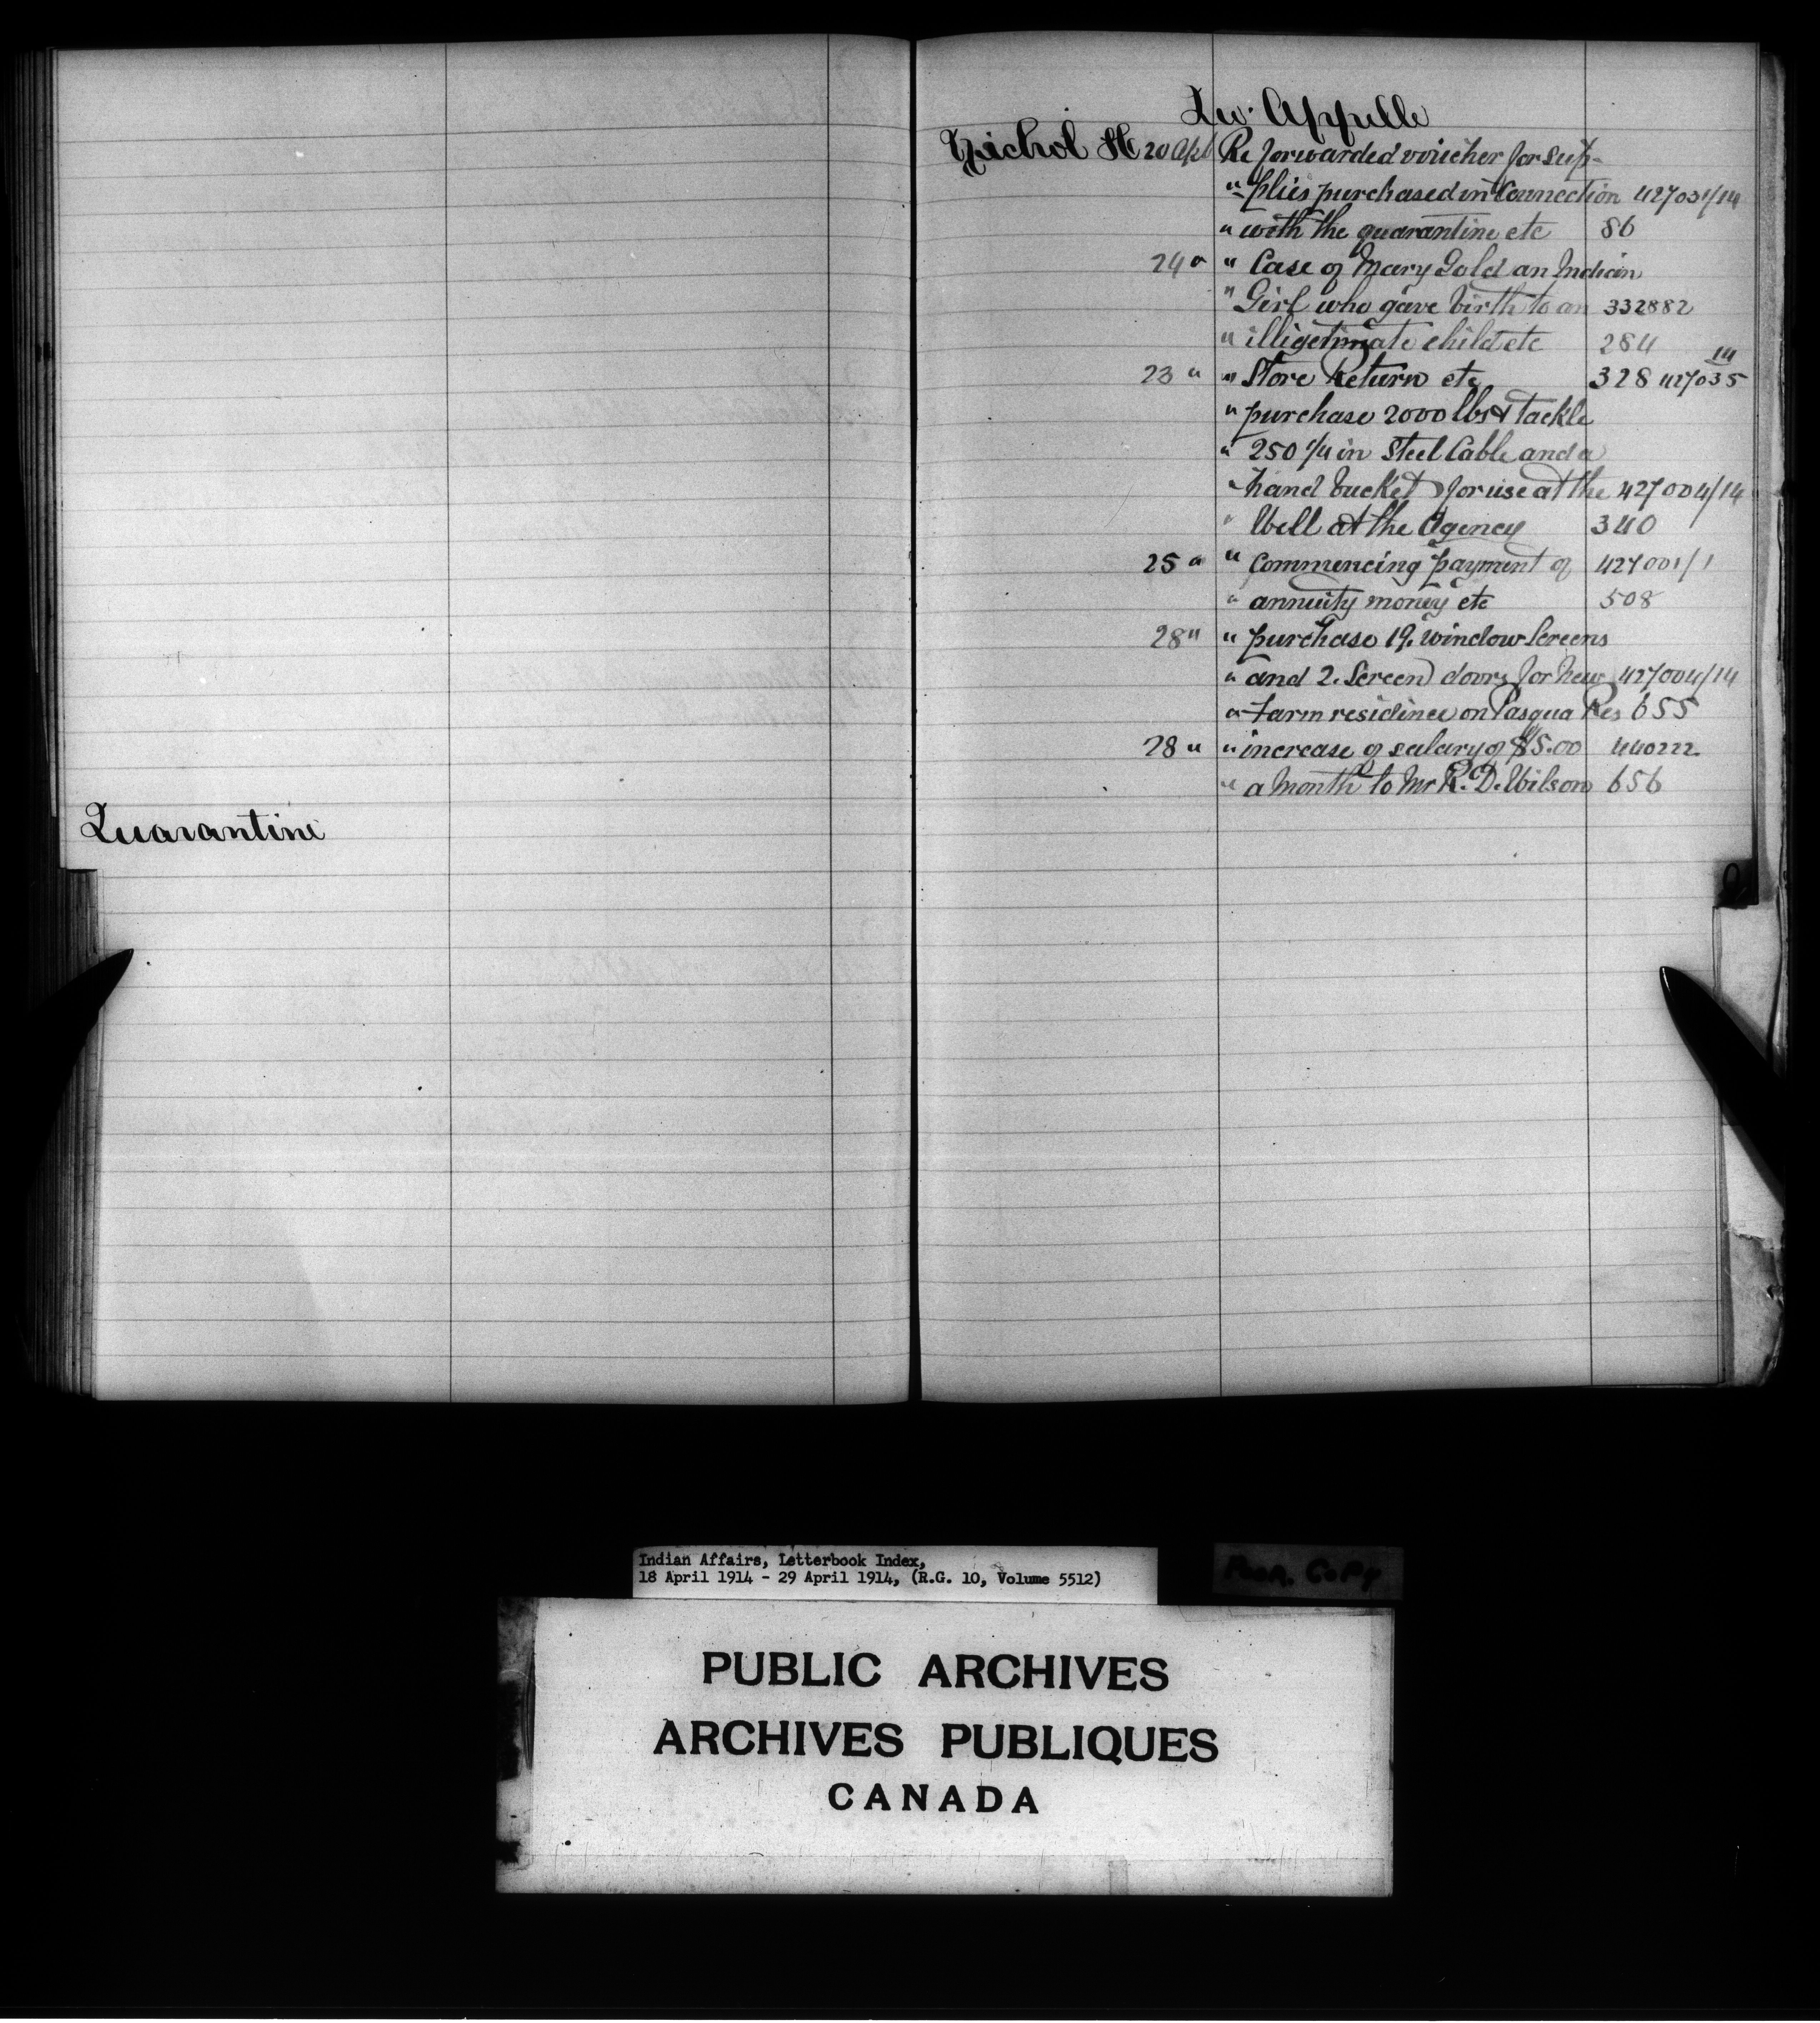 Quarantine
Qu'Appelle
Nichol H 20 Apl Re forwarded voucher for sup-
" plies purchased in Connection 427031/14
" with the quarantine etc 86
24 " " Case of Mary Gold an Indian
" Girl who gave birth to an 332882
" illigetimate child etc 284
23 " " Store Return etc 328 427035 14
" purchase 2000 lbs tackle
" 250 1/4 in Steel Cable and a
" hand bucket for use at the 427004/14
" Well at the Agency 340
25 " " Commencing payment of 427001/1
" annuity money etc 508
28 " " purchase 19. window Screens
" and 2. Screen doors for new 427004/14
" farm residince on Pasqua Res 655
28 " " increase of salary of $5.00 440222
" a month to Mr R. D. Wilson 656
Q
Indian Affairs, Letterbook Index,
18 April 1914 - 29 April 1914, (R.G. 10, Volume 5512)
POOR COPY
PUBLIC ARCHIVES
ARCHIVES PUBLIQUES
CANADA